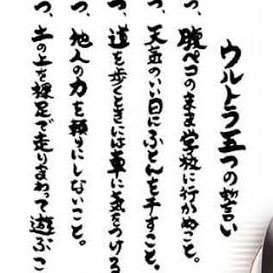 ウルトラ五つの誓い
つ、腹ペコのまま学校に行かぬこと。
つ、天気のいい日にふとんを干すこと。
つ、道を歩くときには車に気をつける
つ、他人の力を頼りにしないこと。
つ、土の上を裸足で走りまわって遊ぶこ